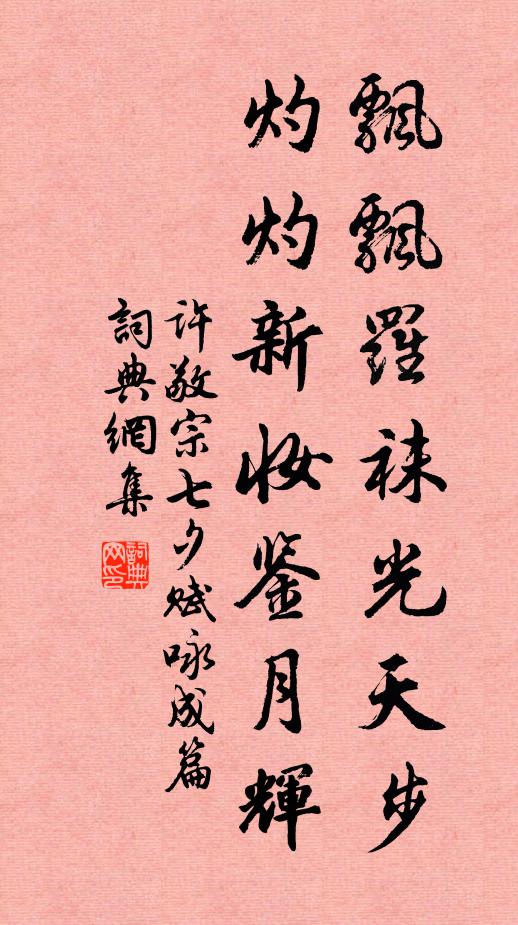 飄飄羅袜光天步
灼灼新妆鉴月輝
许敬宗七夕赋咏成篇
詞典網集
詞典网印